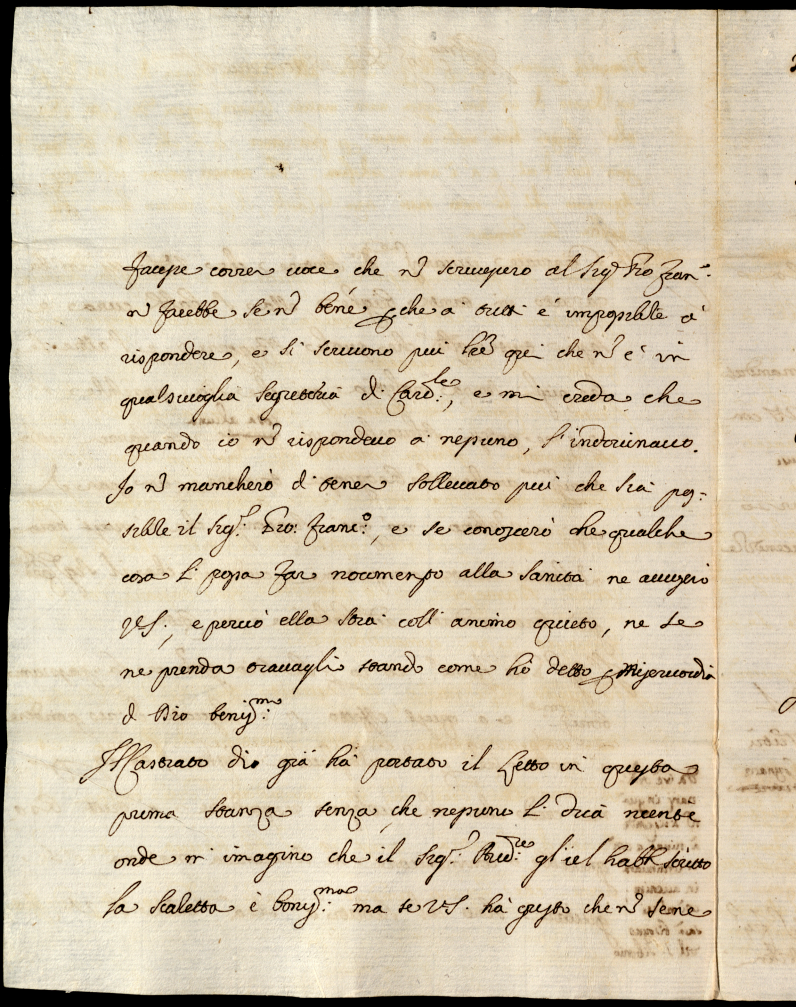 facesse correr voce che nō scrivessero al Sigr Pro Franco
nō farebbe se nō bene perche a tutti é impossibile á
rispondere, e si scrivono piu lrē qui che nō é in
qualsivoglia segreteria di Cardle, e mi creda che
quando io nō rispondevo a nessuno, l'indovinavo.
Io nō mancherò di tener sollevato piu che sia pos:
sibile il Sigr: Pro: Franco:, e se conoscerò che qualche
cosa li possa far nocumento alla sanità ne avviserò
VS:, e perciò ella stia coll animo quieto, ne se
ne prenda travagli stando come hò detto per Misericordia
di Dio benissmo:
Il Castrato dio già hà portato il Letto in questa
prima stanza senza che nessuno li dicà niente
onde m' imagino che il Sigr: gl'iel habbi scritto
la Scaletta è bonissma: ma se VS. hà gusto che nō se ne